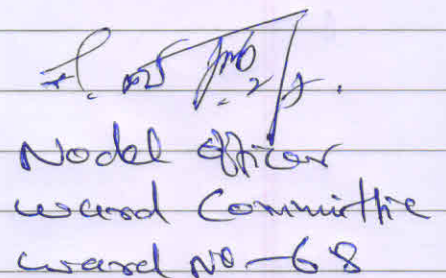 Nodal Officer
Ward Committie
Ward No - 68